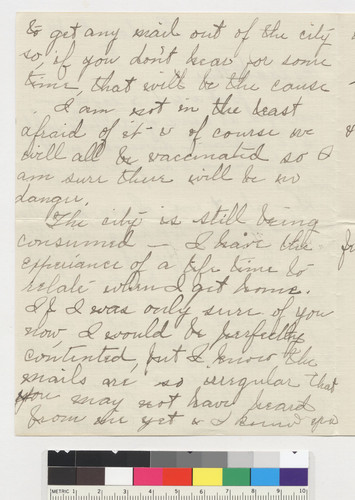 to get any mail out of the city
so, if you don't hear for some
time, that will be the cause
. I am not in the least
afraid of it - & of course we
will all be vaccinated so I
am sure there will be no
danger.
The city is still being
consumed — I have the
experiance of a life time to
relate when I get home.
If I was only sure of you
now, I would be perfectly
contented, but I know the
mails are so irregular that
you may not have heard
from me yet & I know you
METRIC 1 2 3 4 5 6 7 8 9 10